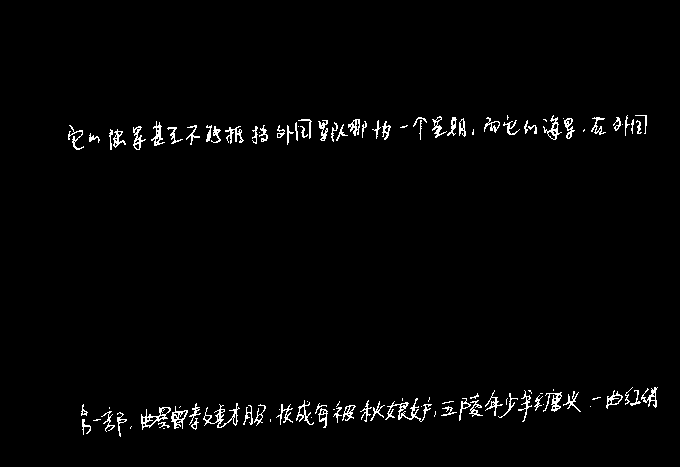 它的陆军甚至不能抵挡外国军队哪怕一个星期,而它的海军,在外国
第一部,曲罢曾教善才服,妆成每被秋娘妒,五陵年少争缠头,一曲红绡